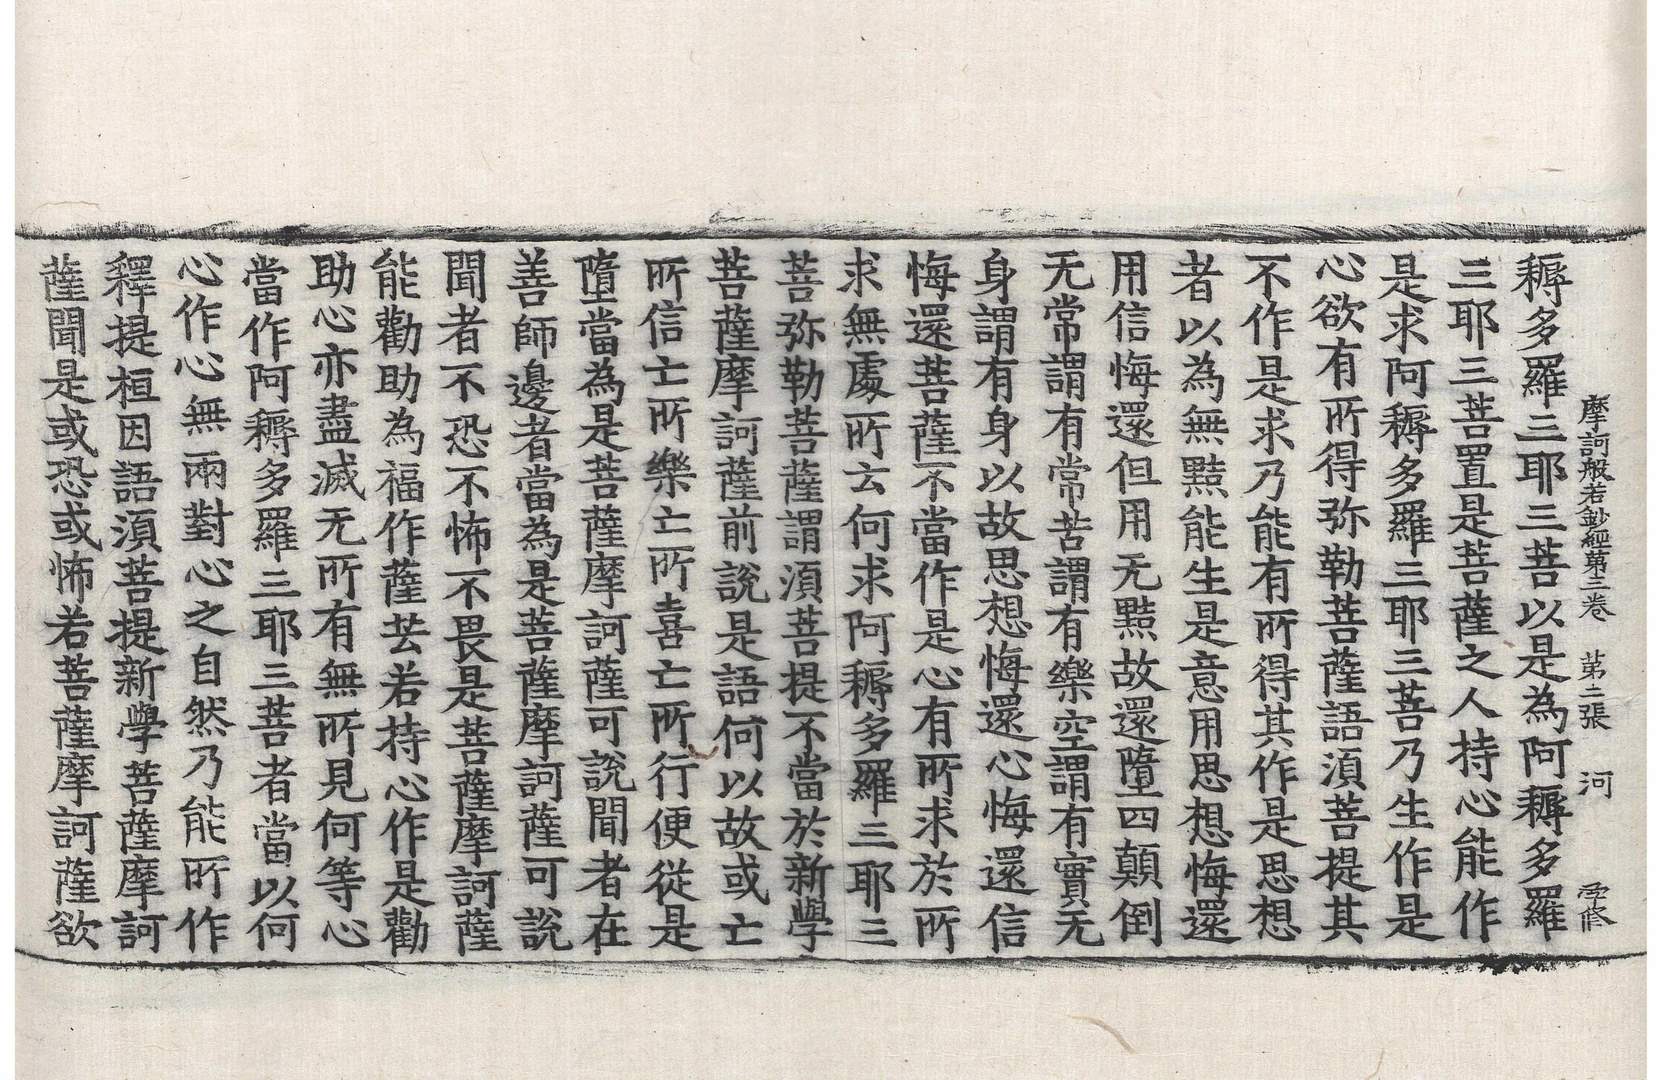 摩訶般若鈔經第三卷　第二張　河
耨多羅三耶三菩以是為阿耨多羅
三耶三菩置是菩薩之人持心能作
是求阿耨多羅三耶三菩乃生作是
心欲有所得弥勒菩薩語湏菩提其
不作是求乃能有所得其作是思想
者以為無黠能生是意用思想悔還
用信悔還但用无黠故還墮四顛倒
无常謂有常苦謂有樂空謂有實无
身謂有身以故思想悔還心悔還信
悔還菩薩不當作是心有所求於所
求無處所云何求阿耨多羅三耶三
菩弥勒菩薩謂湏菩提不當於新學
菩薩摩訶薩前說是語何以故或亡
所信亡所樂亡所喜亡所行便從是
墮當為是菩薩摩訶薩可說聞者在
善師邊者當為是菩薩摩訶薩可說
聞者不恐不怖不畏是菩薩摩訶薩
能勸助為福作薩芸若持心作是勸
助心亦盡滅无所有無所見何等心
當作阿耨多羅三耶三菩者當以何
心作心無兩對心之自然乃能所作
釋提桓因語湏菩提新學菩薩摩訶
薩聞是或恐或怖若菩薩摩訶薩欲